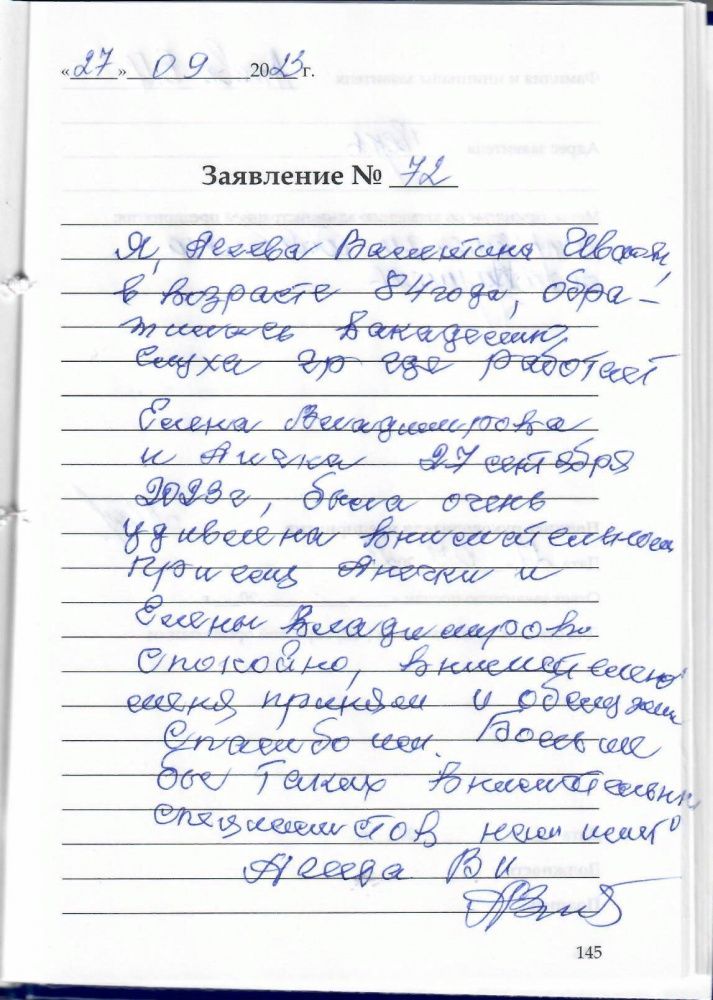 «27» 09 2023 г.
Заявление № 72
Я, Валентина Иван
в возрасте 84 года, обра-
тилась в академию
слуха где работает
Елена Владимировна
и Анечка 27 сентября
2023 г, была очень
удивлена внимательном
приему Анечки и
Елены Владимировн
спокойно, внимательно
меня приняли и обслужили
Спасибо им. Больше
бы таких внимательных
специалистов
В И
145